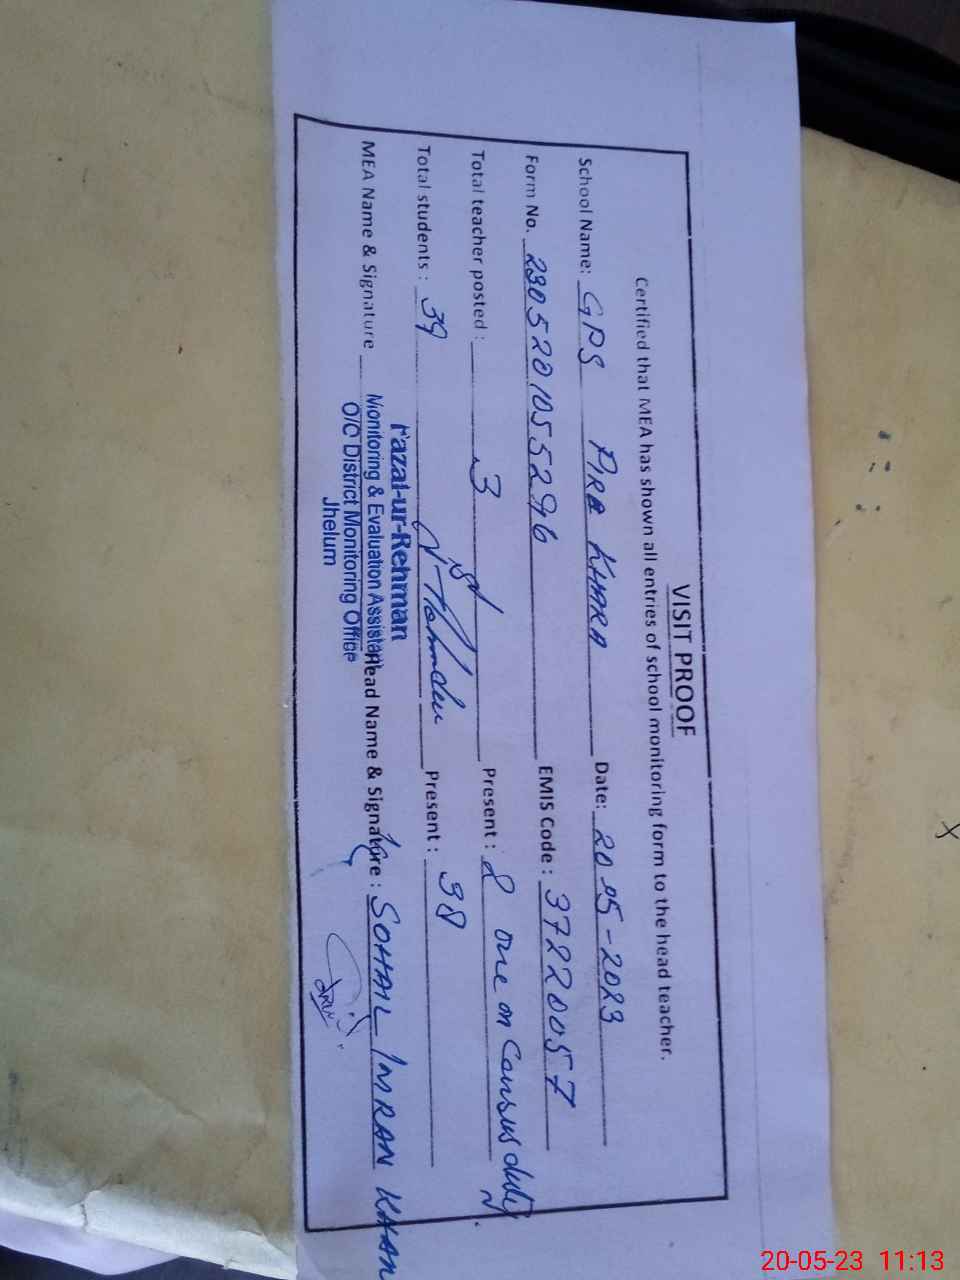 VISIT PROOF
Certified that MEA has shown all entries of school monitoring form to the head teacher.
School Name: GPS PIRA KHARA Date: 20-05-2023
Form No. 230520105529 6 EMIS Code: 37220057
Total teacher posted: 3 Present: 2 one on Census duty.
Total students: 39 Present: 38
MEA Name & Signature Head Name & Signature: SOHAIL IMRAN KHAN
Fazal-ur-Rehman
Monitoring & Evaluation Assistant
O/C District Monitoring Office
Jhelum
20-05-23 11:13